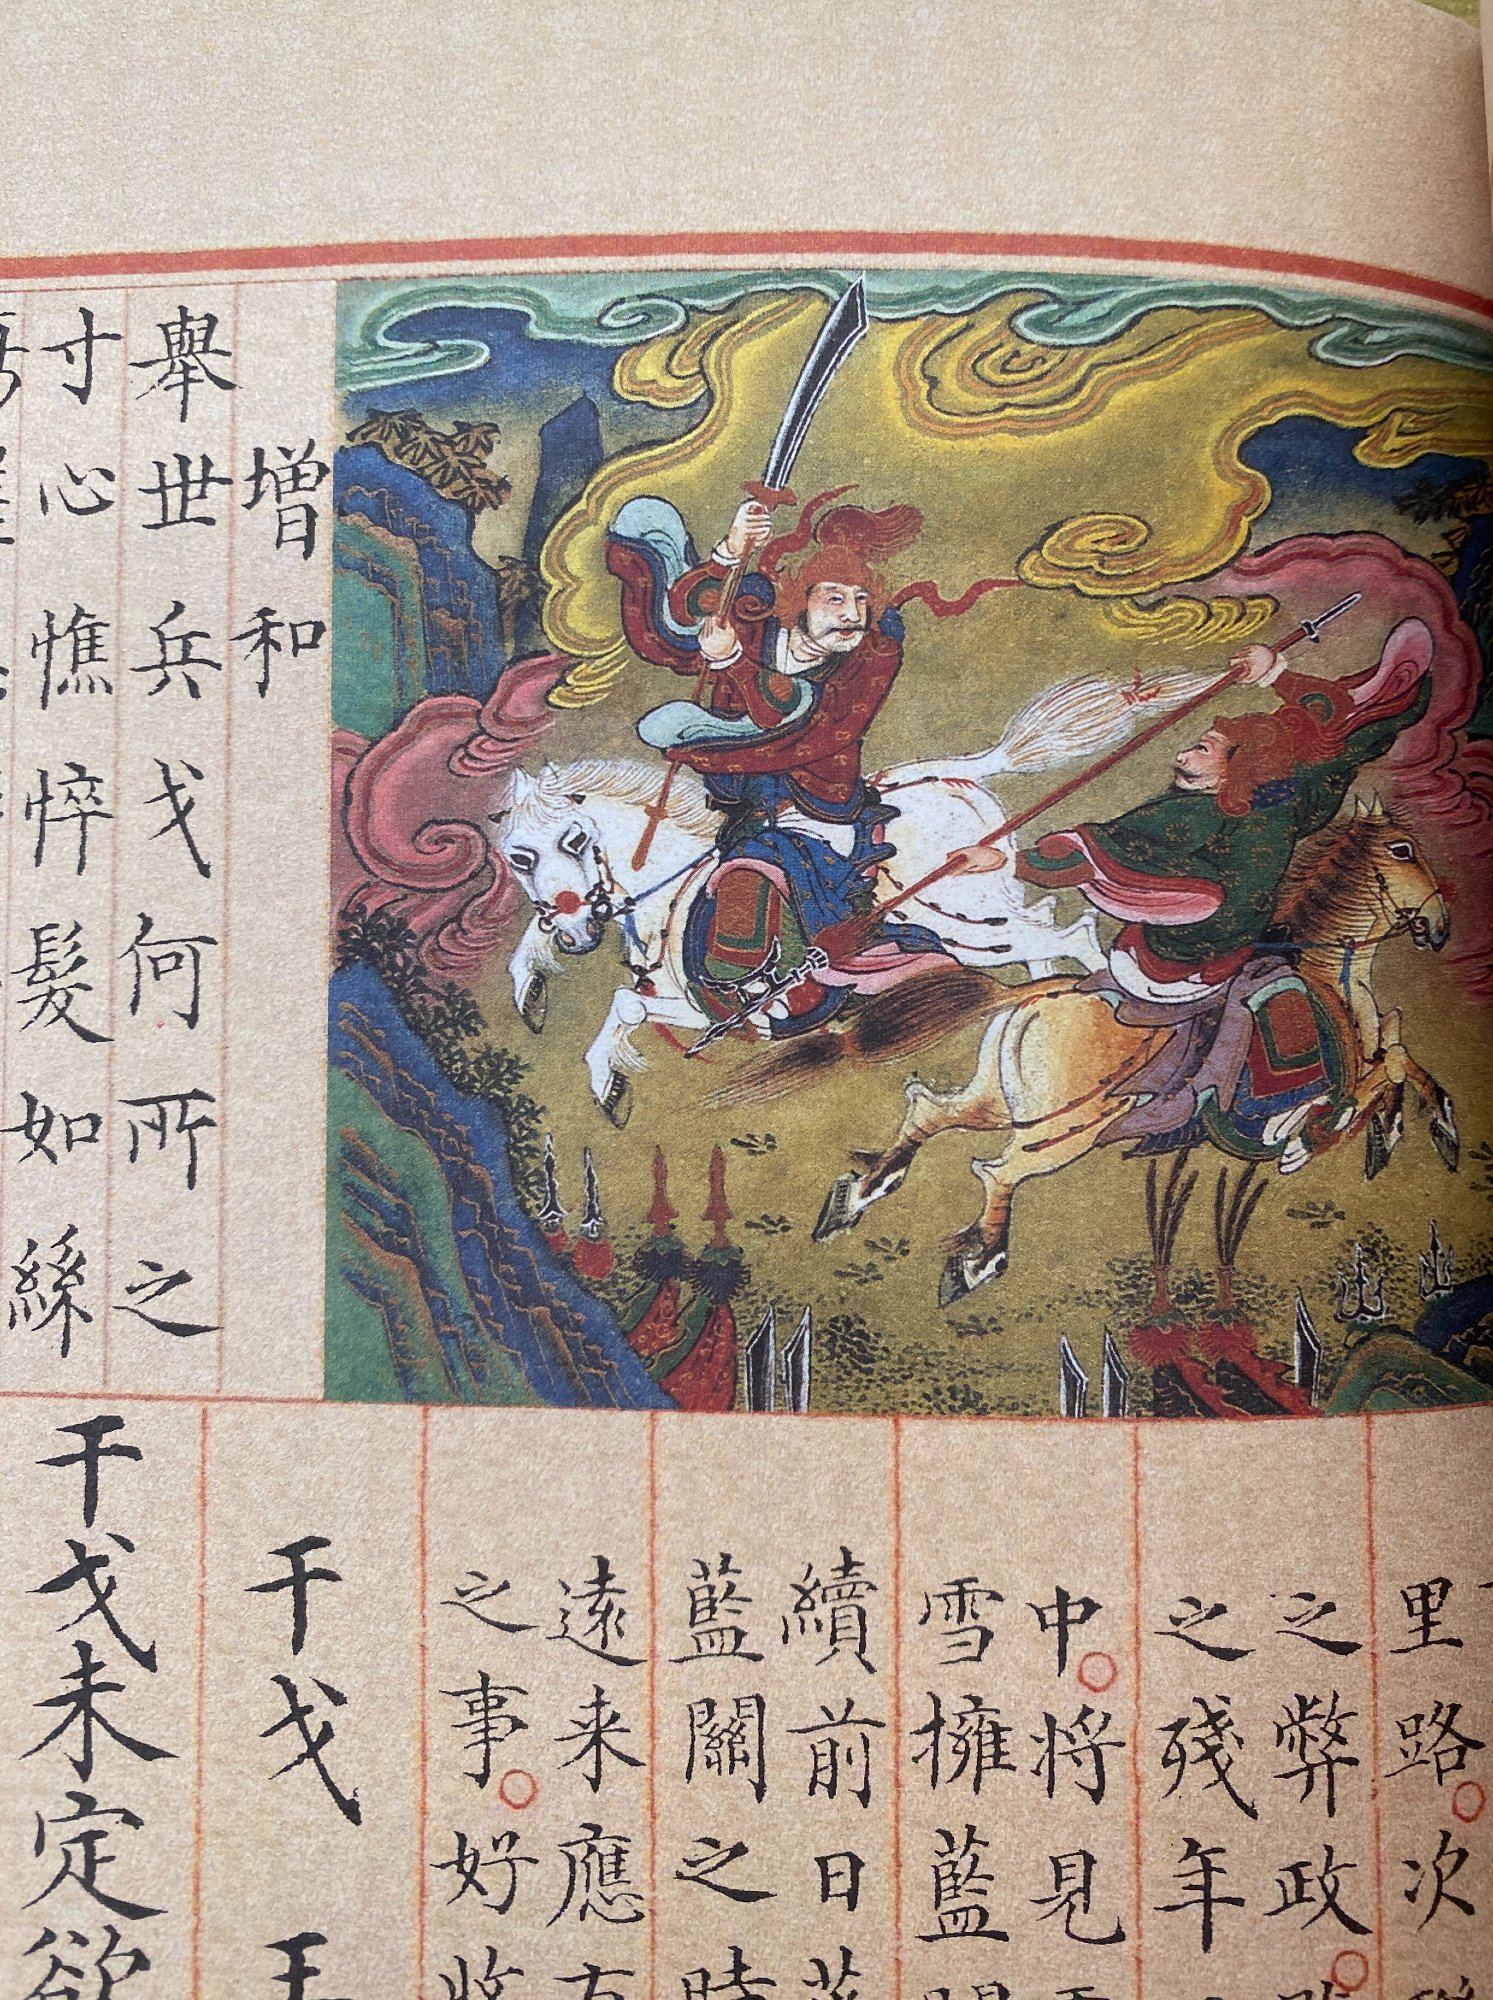 增和
舉世兵戈何所之
寸心憔悴髮如絲
里路。次
之弊政。
之殘年
中。將見
雪擁藍
續前日
藍關之時
遠来應
之事。好收
干戈 王
干戈未定欲